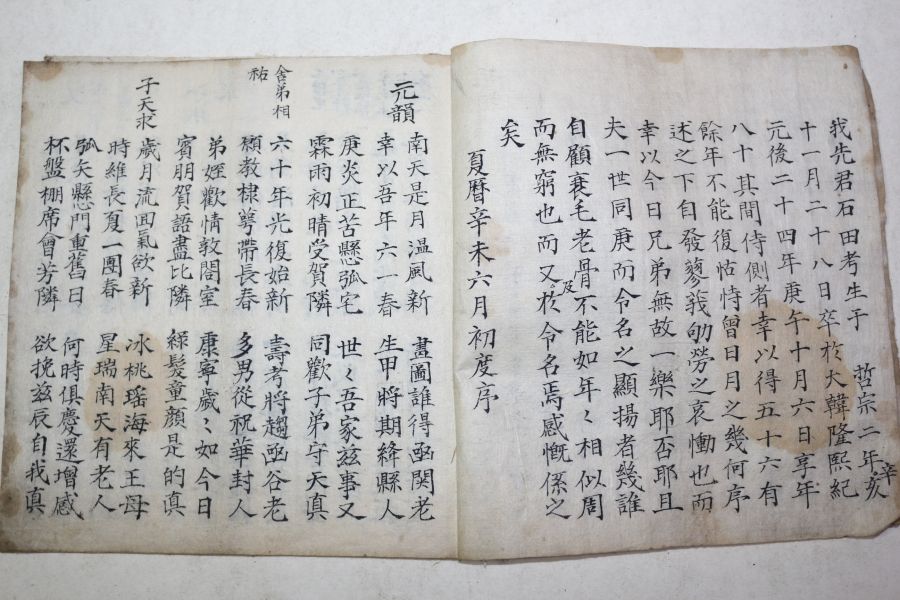 我先君石田考生于 哲宗二年辛亥
十一月二十八日卒於大韓隆熙紀
元後二十四年庚午十月六日享年
八十其間侍側者幸以得五十六有
餘年不能復怙恃曾日月之幾何序
述之下自發蓼莪劬勞之哀慟也而
幸以今日兄弟無故一樂耶否耶且
夫一世同庚而令名之顯揚者幾誰
自顧衰毛老骨及不能如年々相似周
而無窮也而又於令名焉感慨係之
矣
夏曆辛未六月初度序
元韻
南天是月溫風新 畫圖誰得亟関老
幸以吾年六一春 生甲將期絳縣人
庚炎正苦懸弧宅 世々吾家茲事又
霖雨初晴受賀隣 同歡子弟守天眞
舍弟相祐
六十年光復始新 壽考將趨亟谷老
頌教棣萼帶長春 多男從祝華封人
弟姪歡情敦閤室 康寧歲々如今日
賓朋賀語盡比隣 綠髮童顔是的眞
子天求
歲月流回氣欲新 冰桃瑤海來王母
時維長夏一團春 星瑞南天有老人
弧矢懸門重舊日 何時俱慶還增感
杯盤棚席會芳隣 欲挽茲辰自我眞